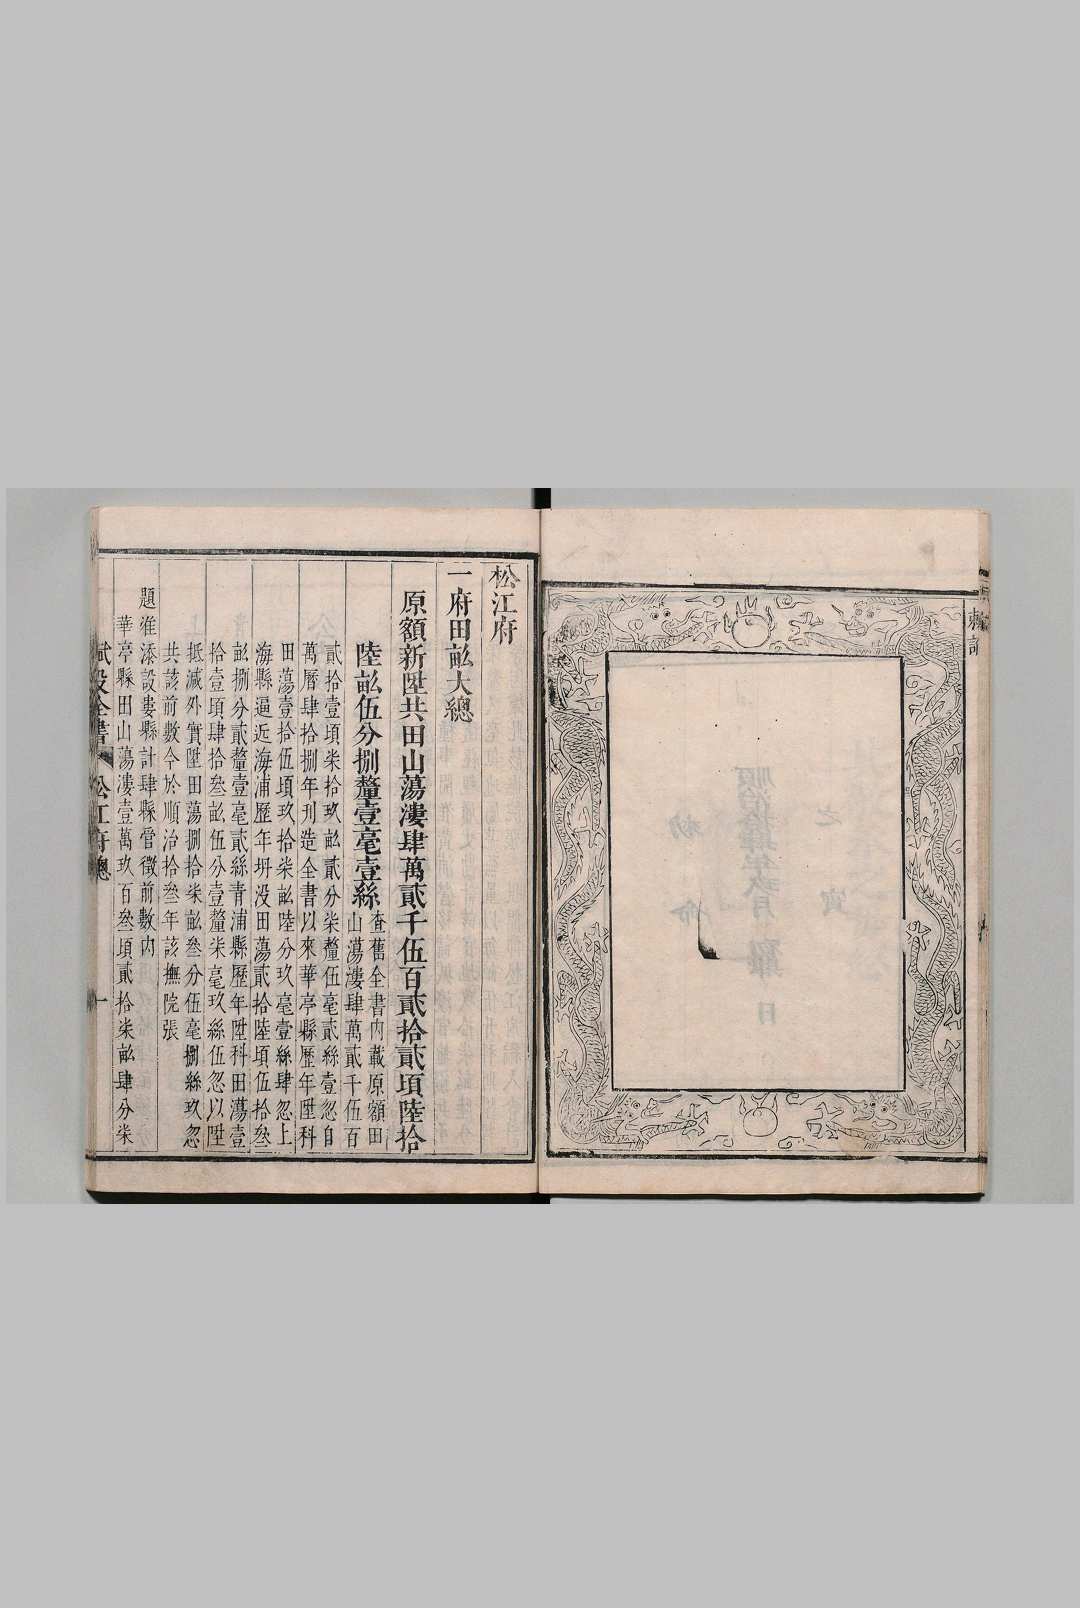 松江府
一府田畝大總
原額新陞共田山蕩漊肆萬貳千伍百貳拾貳頃陸拾
陸畝伍分捌釐壹毫壹絲
查舊全書內載原額田
山蕩漊肆萬貳千伍百
貳拾壹頃柒拾玖畝貳分柒釐伍毫貳絲壹忽自
萬曆肆拾捌年刋造全書以來華亭縣歷年陞科
田蕩壹拾伍頃玖拾柒畝陸分玖毫壹絲肆忽上
海縣逼近海浦歷年坍没田蕩貳拾陸頃伍拾叁
畝捌分貳釐壹毫貳絲青浦縣歷年陞科田蕩壹
拾壹頃肆拾叁畝伍分壹釐柒毫玖絲伍忽以陞
抵減外實陞田蕩捌拾柒畝叁分伍毫捌絲玖忽
共該前數今於順治拾叁年該撫院張
題准添設婁縣計肆縣管徵前數內
華亭縣田山蕩漊壹萬玖百叁頃貳拾柒畝肆分柒
賦役全書 松江府總 一